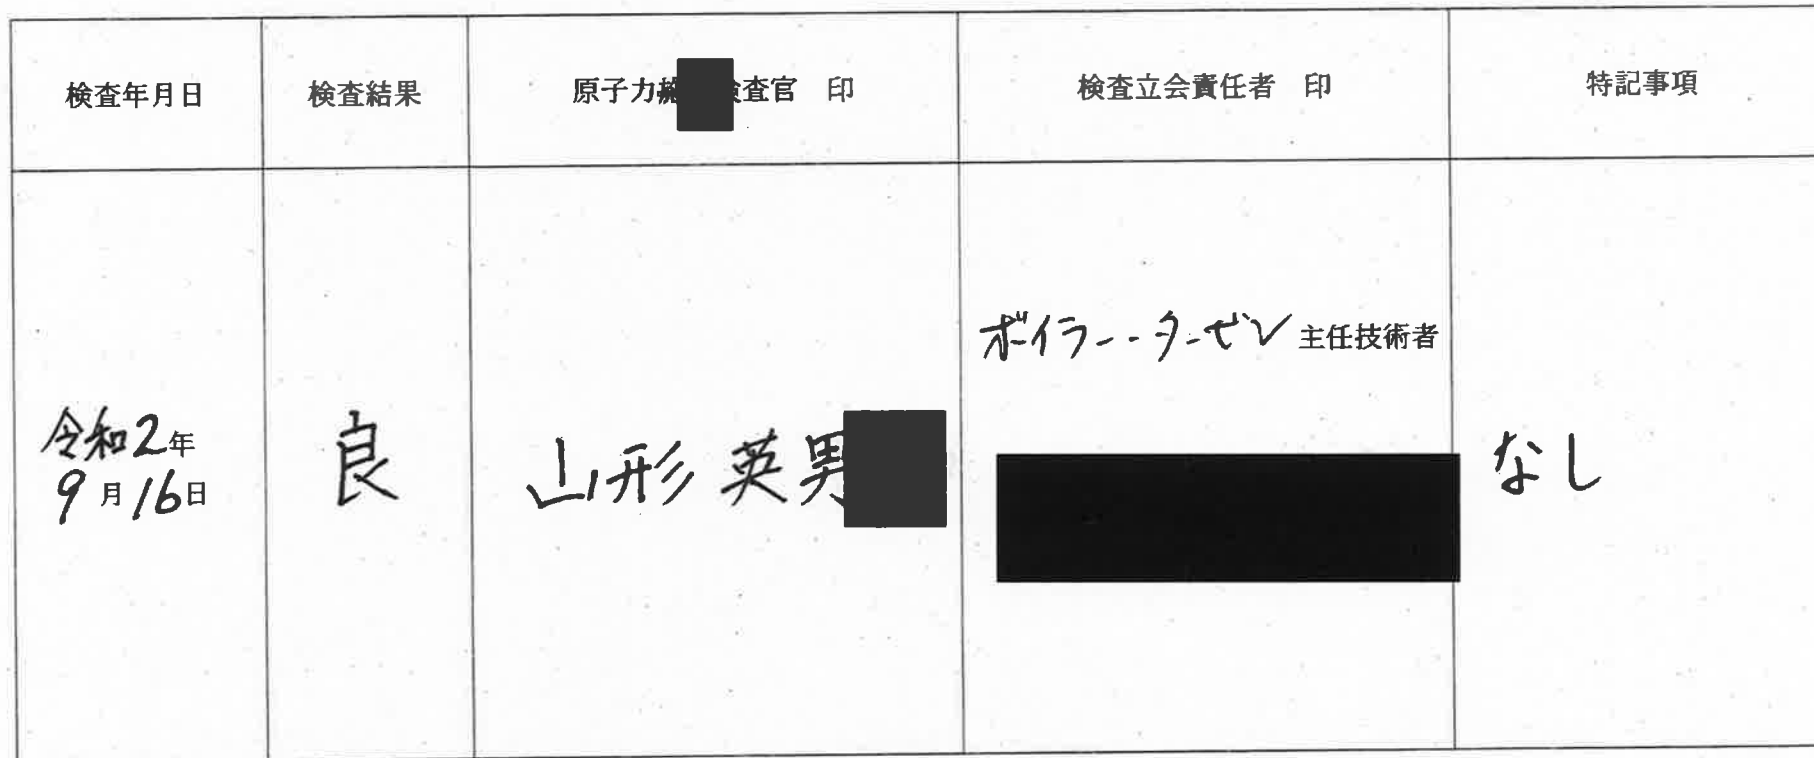 検査年月日
検査結果
原子力 査官 印
検査立会責任者 印
特記事項
令和2年
9月16日
良
山形 英男
ボイラー・タービン主任技術者
なし